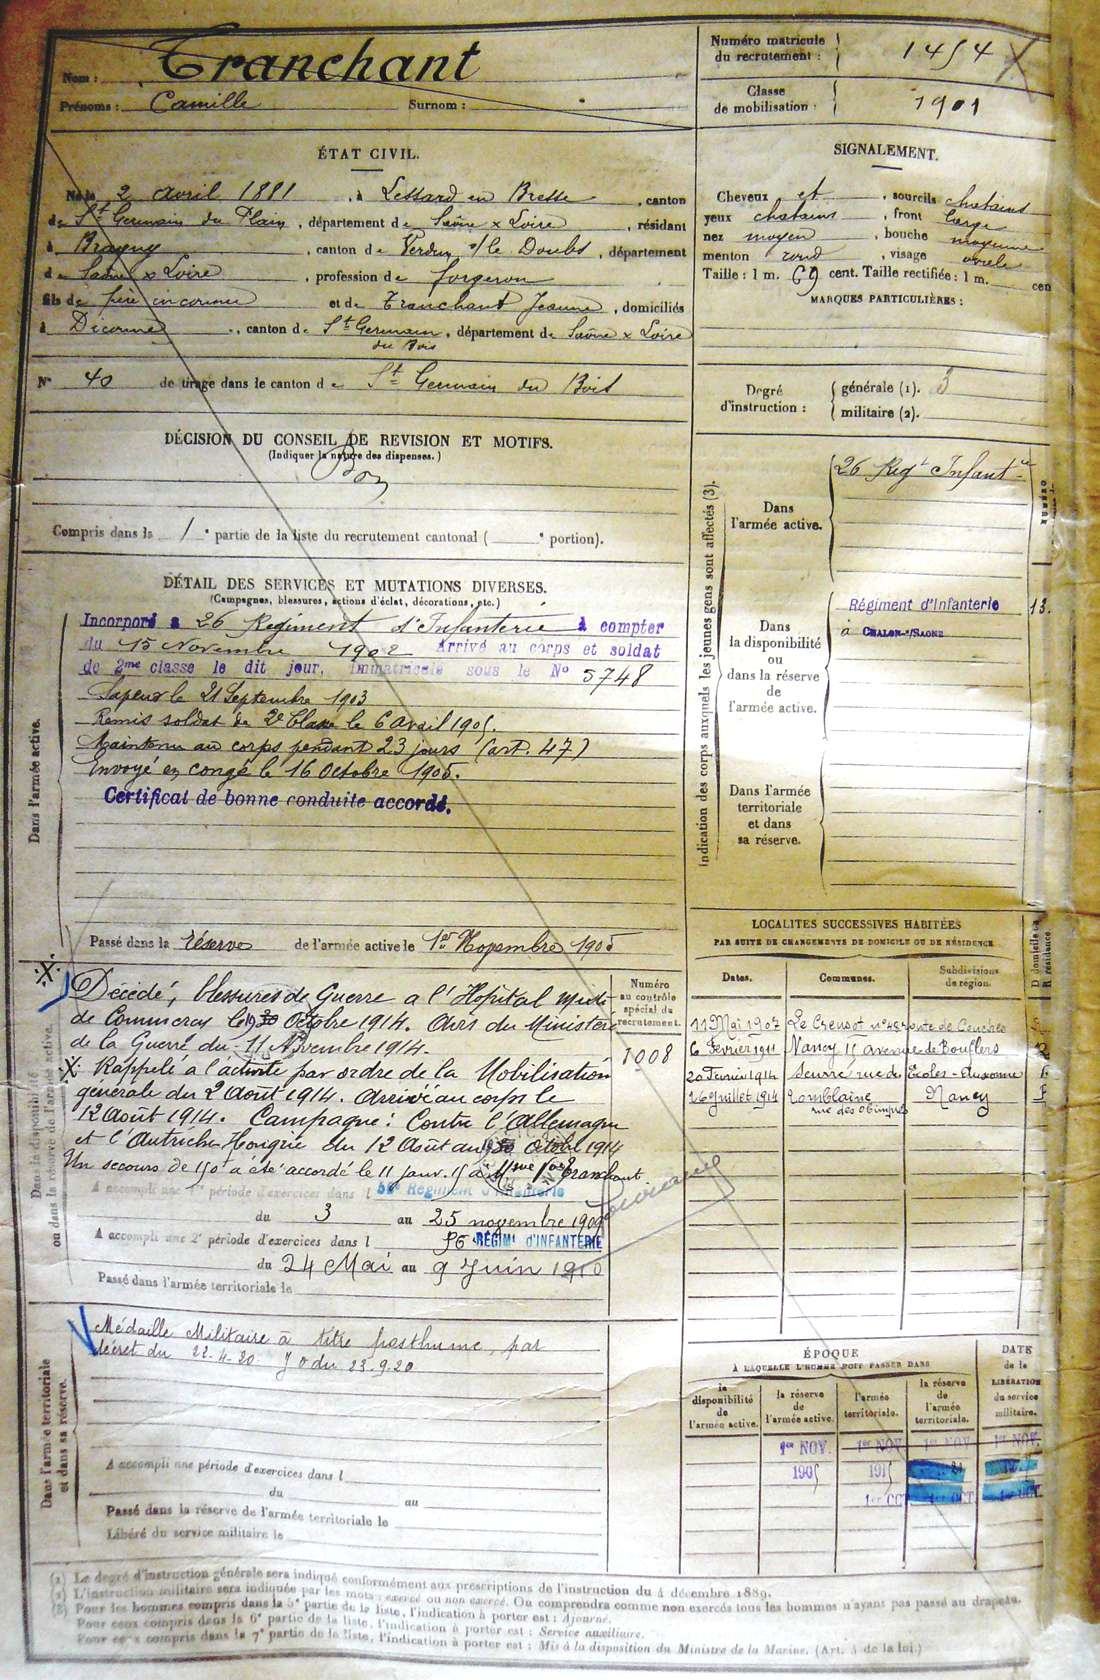 Nom : Tranchant
Prénoms : Camille Surnom :
Numéro matricule du recrutement : 1454
Classe de mobilisation : 1901
ÉTAT CIVIL.
Né le 2 avril 1881, à Lessard en Bresse, canton
de St Germain du Plain, département de Saône & Loire, résidant
à Bragny, canton de Verdun s/ le Doubs, département
de Saône & Loire, profession de forgeron
fils de père inconnu et de Tranchant Jeanne, domiciliés
à Diconne, canton de St Germain du Bois, département de Saône & Loire
N° 40 de tirage dans le canton de St Germain du Bois
SIGNALEMENT.
Cheveux et, sourcils chatains
yeux chatains, front large
nez moyen, bouche moyenne
menton rond, visage ovale
Taille : 1 m. 69 cent. Taille rectifiée : 1 m. cen
MARQUES PARTICULIÈRES :
Degré d'instruction : générale (1). 3
militaire (2).
DÉCISION DU CONSEIL DE REVISION ET MOTIFS.
(Indiquer la nature des dispenses.)
Bon
Compris dans la 1e partie de la liste du recrutement cantonal ( e portion).
DÉTAIL DES SERVICES ET MUTATIONS DIVERSES.
(Campagnes, blessures, actions d'éclat, décorations, etc.)
Dans l'armée active.
Incorporé a 26 Régiment d'Infanterie à compter
du 15 Novembre 1902 Arrivé au corps et soldat
de 2me classe le dit jour. Immatriculé sous le N° 5748
Sapeur le 21 Septembre 1903
Remis soldat de 2e Classe le 6 avril 1905.
Maintenu au corps pendant 23 jours (art. 47)
Envoyé en congé le 16 Octobre 1905.
Certificat de bonne conduite accordé.
Passé dans la réserve de l'armée active le 1er Novembre 1905
Indication des corps auxquels les jeunes gens sont affectés (3).
Dans l'armée active.
26 Regt Infantie
Dans la disponibilité ou dans la réserve de l'armée active.
Régiment d'Infanterie 13.
à CHALON-s/SAONE
Dans l'armée territoriale et dans sa réserve.
Dans la disponibilité ou dans la réserve de l'armée active.
Décédé, blessures de Guerre a l'Hôpital
de Commercy le Octobre 1914. Avis du Ministère
de la Guerre du 11 Novembre 1914.
Rappelé à l'activité par ordre de la Mobilisation
générale du 2 Août 1914. Arrivé au corps le
12 Août 1914. Campagne : Contre l'Allemagne
et l'Autriche Hongrie du 12 Août au octobre 1914
Un secours de 150f a été accordé le 11 janv. 15 à Mme Vve Tranchant
A accompli une 1re période d'exercices dans l 56e Régiment d'Infanterie
du 3 au 25 novembre 1909
A accompli une 2e période d'exercices dans l 56 RÉGIMt D'INFANTERIE
du 24 Mai au 9 Juin 1910
Passé dans l'armée territoriale le
Numéro au contrôle spécial du recrutement.
1008
LOCALITÉS SUCCESSIVES HABITÉES
PAR SUITE DE CHANGEMENTS DE DOMICILE OU DE RÉSIDENCE
Dates. Communes. Subdivisions de région. D domicile R résidence
11 Mai 1907 Le Creusot n° 48
6 Février 1911 Nancy 15 avenue de Bouflers
20 Février 1914 Seurre rue des Ecoles - Auxonne
26 Juillet 1914 Tomblaine Nancy
Dans l'armée territoriale et dans sa réserve.
Médaille Militaire à titre posthume, par
décret du 22.4.20 JO du 23.9.20
A accompli une période d'exercices dans l
du au
Passé dans la réserve de l'armée territoriale le
Libéré du service militaire le
ÉPOQUE
À LAQUELLE L'HOMME DOIT PASSER DANS
la disponibilité de l'armée active. la réserve de l'armée active. l'armée territoriale. la réserve de l'armée territoriale. DATE de la LIBÉRATION du service militaire.
1er NOV. 1er NOV 1er NOV 1er NOV.
1905 1915
1er OCT 1er OCT 1er OCT.
(1) Le degré d'instruction générale sera indiqué conformément aux prescriptions de l'instruction du 4 décembre 1889.
(2) L'instruction militaire sera indiquée par les mots : exercé ou non exercé. On comprendra comme non exercés tous les hommes n'ayant pas passé au drapeau.
(3) Pour les hommes compris dans la 5e partie de la liste, l'indication à porter est : Ajourné.
Pour ceux compris dans la 6e partie de la liste, l'indication à porter est : Service auxiliaire.
Pour ceux compris dans la 7e partie de la liste, l'indication à porter est : Mis à la disposition du Ministre de la Marine. (Art. 4 de la loi.)